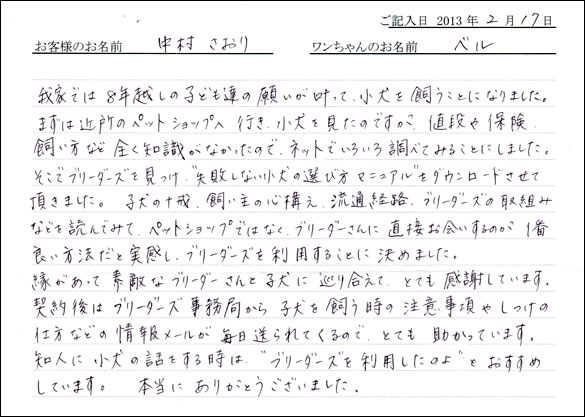 ご記入日 2013 年 2 月 17 日
お客様のお名前 中村 さおり ワンちゃんのお名前 ベル
我家では 8年越しの子ども達の願いが叶って、小犬を飼うことになりました。
まずは近所のペットショップへ行き、小犬を見たのですが、値段や保険、
飼い方など全く知識がなかったので、ネットでいろいろ調べてみることにしました。
そこでブリーダーズを見つけ、"失敗しない小犬の選び方マニュアル"をダウンロードさせて
頂きました。 子犬の十戒、飼い主の心構え、流通経路、ブリーダーズの取組み
などを読んでみて、ペットショップではなく、ブリーダーさんに直接お会いするのが1番
良い方法だと実感し、ブリーダーズを利用することに決めました。
縁があって素敵なブリーダーさんと子犬に巡り合えて、とても感謝しています。
契約後はブリーダーズ事務局から子犬を飼う時の注意事項やしつけの
仕方などの情報メールが毎日送られてくるので、とても助かっています。
知人に小犬の話をする時は、"ブリーダーズを利用したのよ"とおすすめ
しています。 本当にありがとうございました。